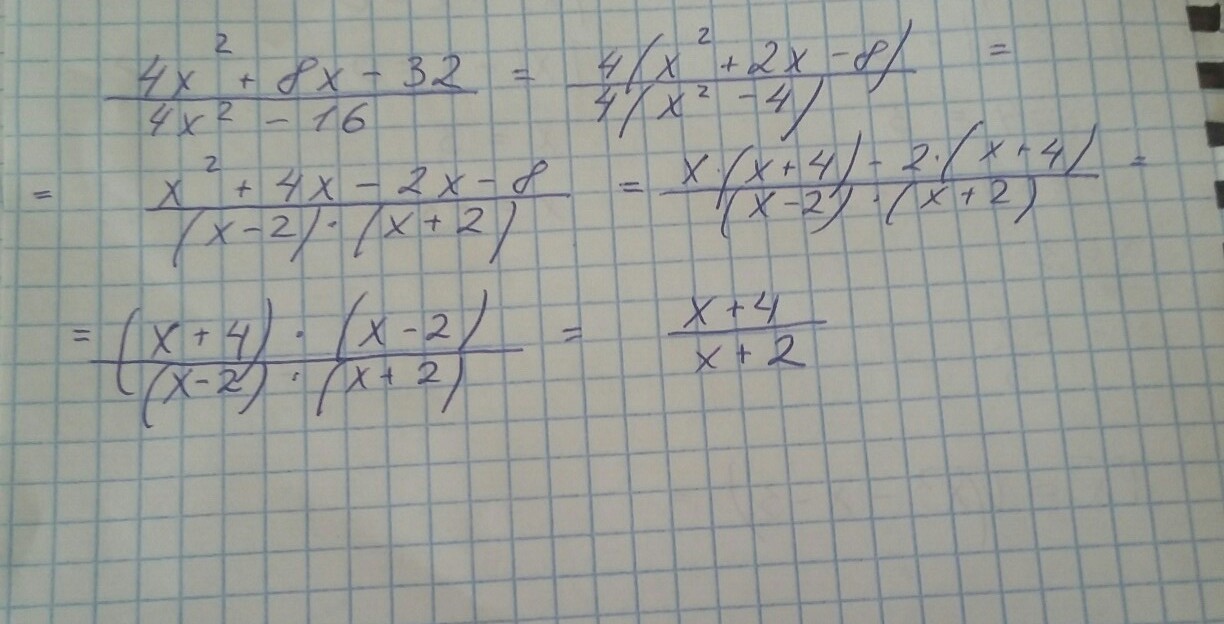 (4x² + 8x - 32)/(4x² - 16) = 4(x² + 2x - 8)/4(x² - 4) =
= (x² + 4x - 2x - 8)/((x-2)·(x+2)) = (x·(x+4) - 2·(x+4))/((x-2)·(x+2)) =
= ((x+4)·(x-2))/((x-2)·(x+2)) = (x+4)/(x+2)